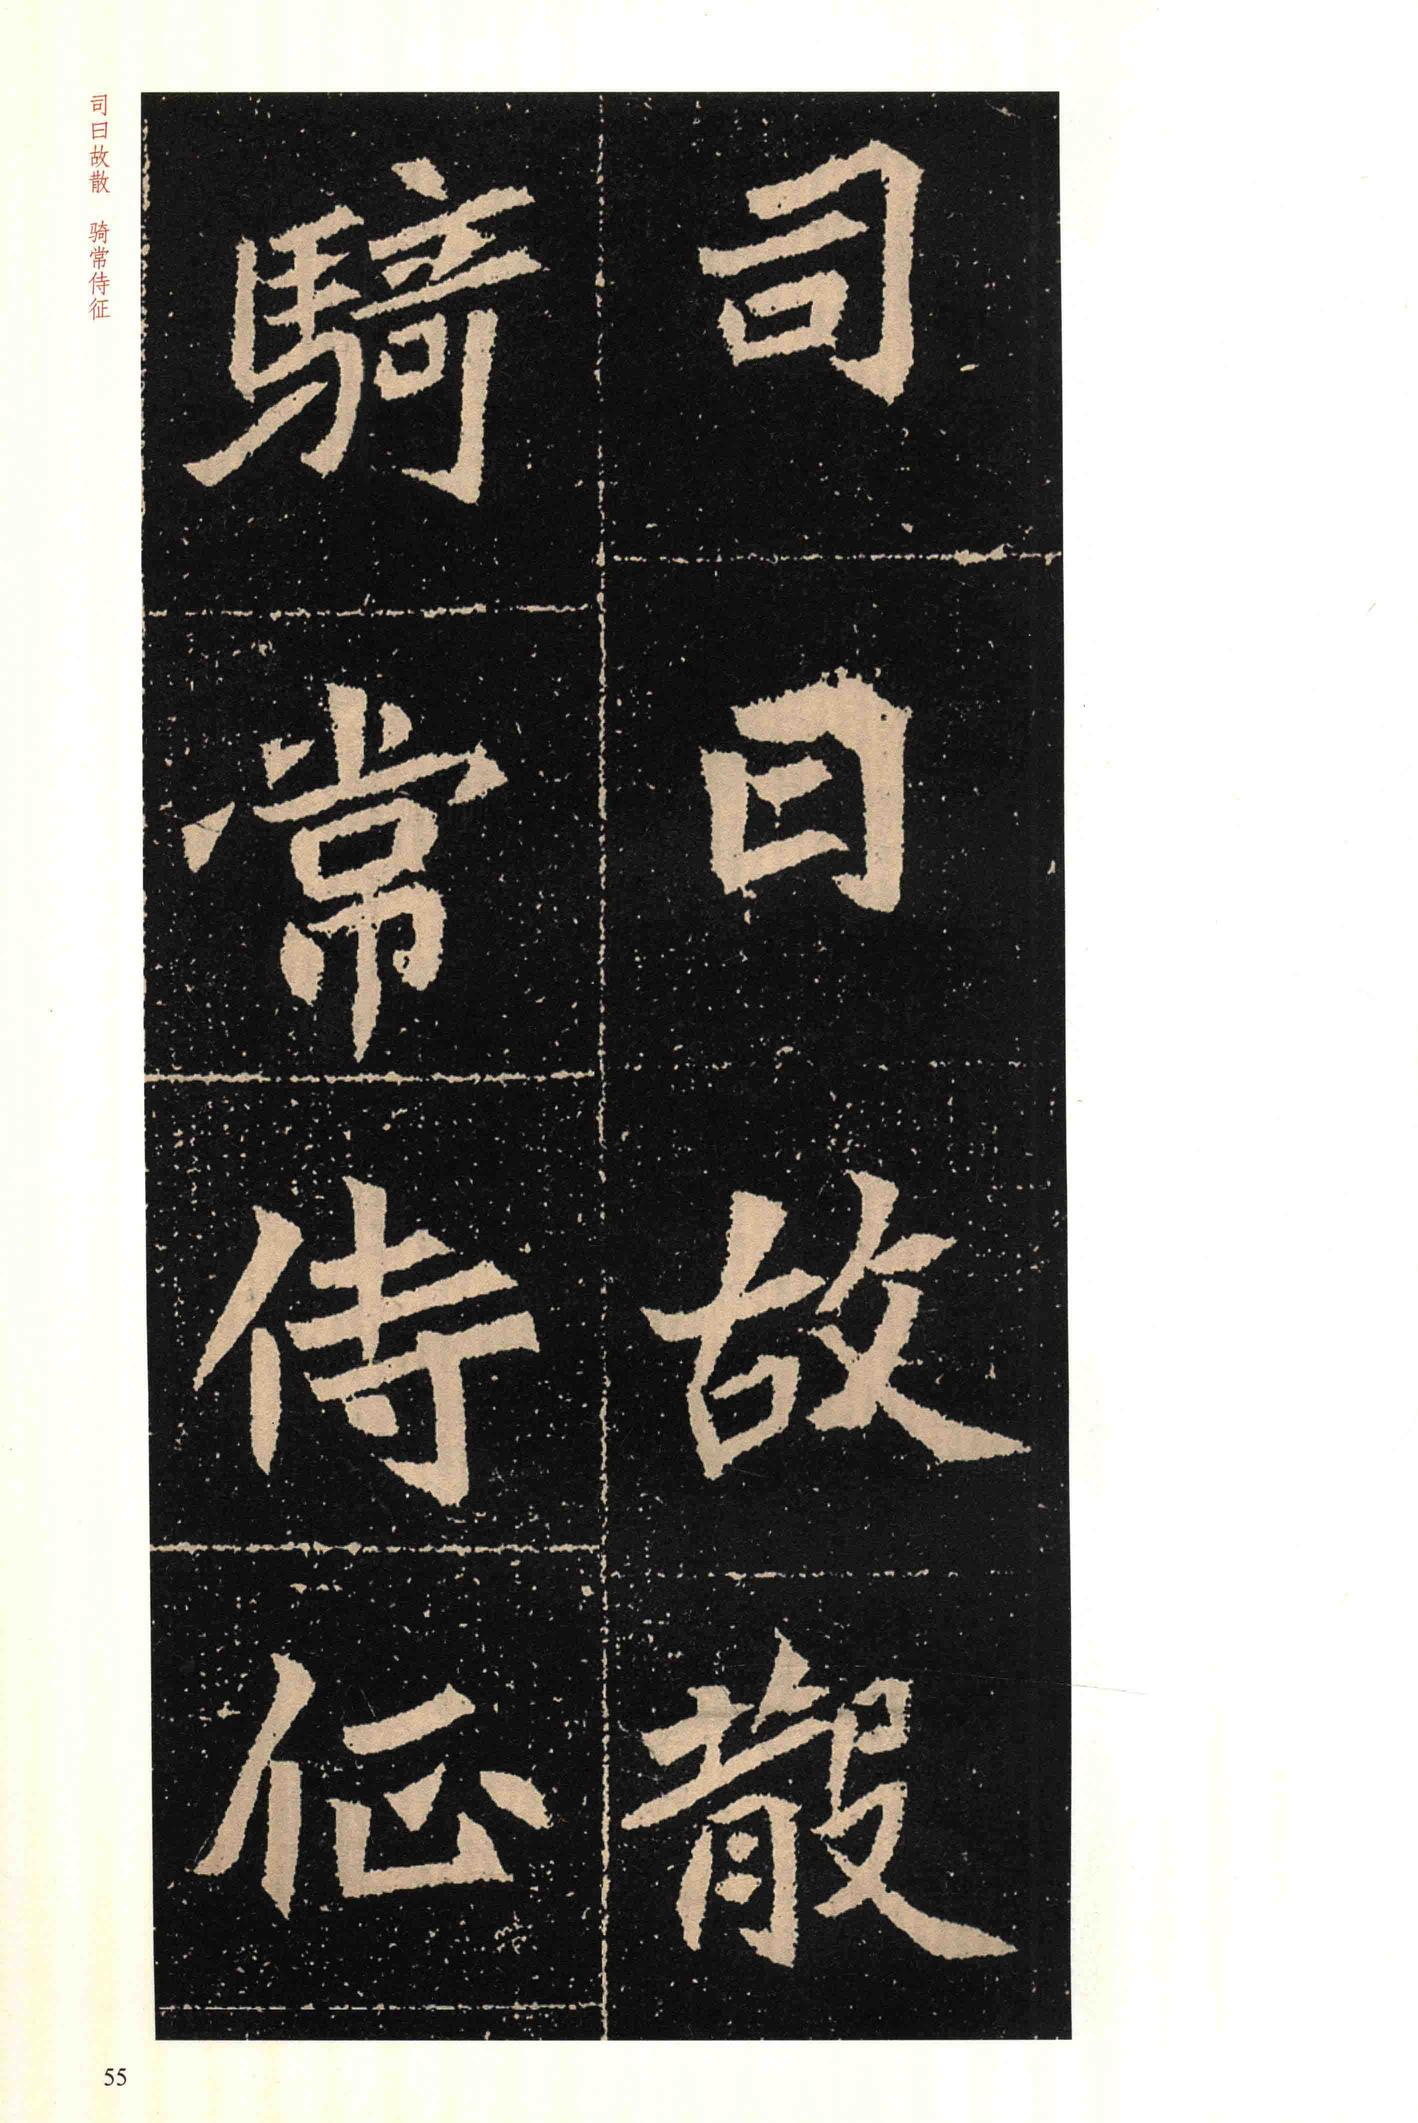 司曰故散
騎常侍征
司曰故散 骑常侍征
55